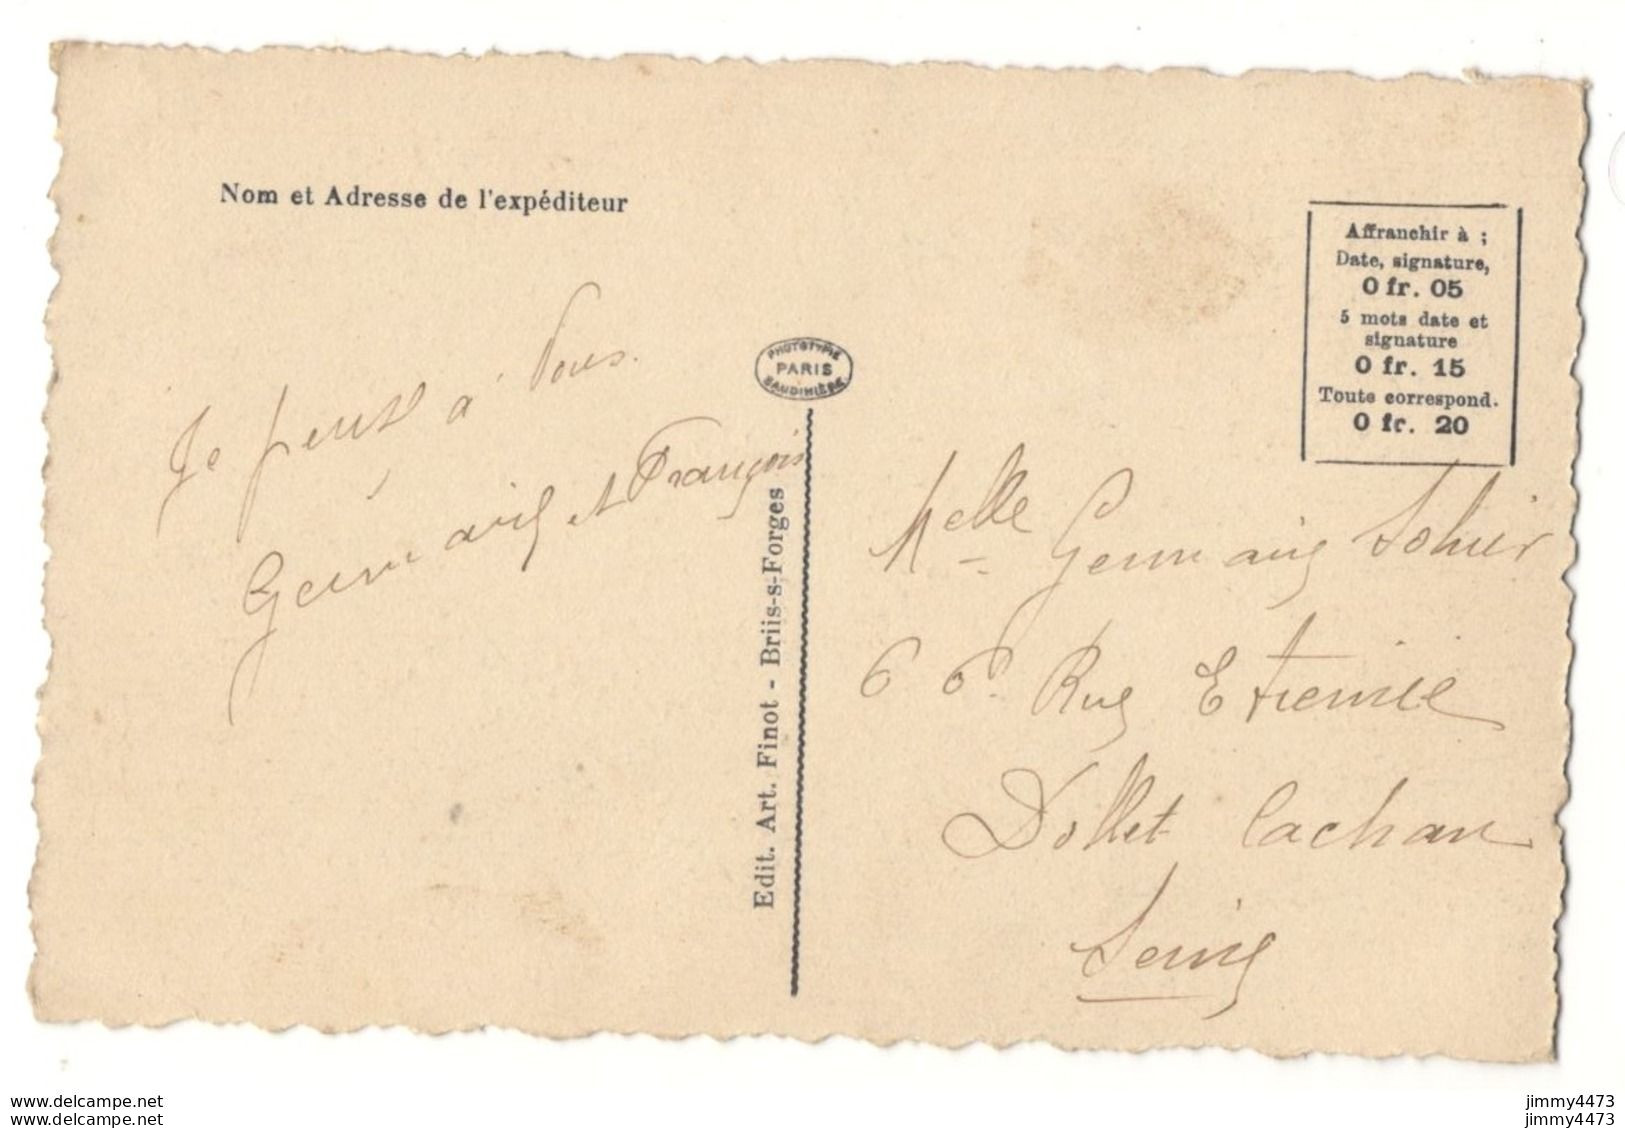 Nom et Adresse de l'expéditeur
Je pense à Vous.
Germaine et François
PHOTOTYPIE
PARIS
BAUDINIÈRE
Edit. Art. Finot - Briis-s-Forges
Affranchir à ;
Date, signature,
0 fr. 05
5 mots date et
signature
0 fr. 15
Toute correspond.
0 fr. 20
Melle Germaine Sohier
66 Rue Etienne
Dollet Cachan
Seine
www.delcampe.net
www.delcampe.net
jimmy4473
jimmy4473